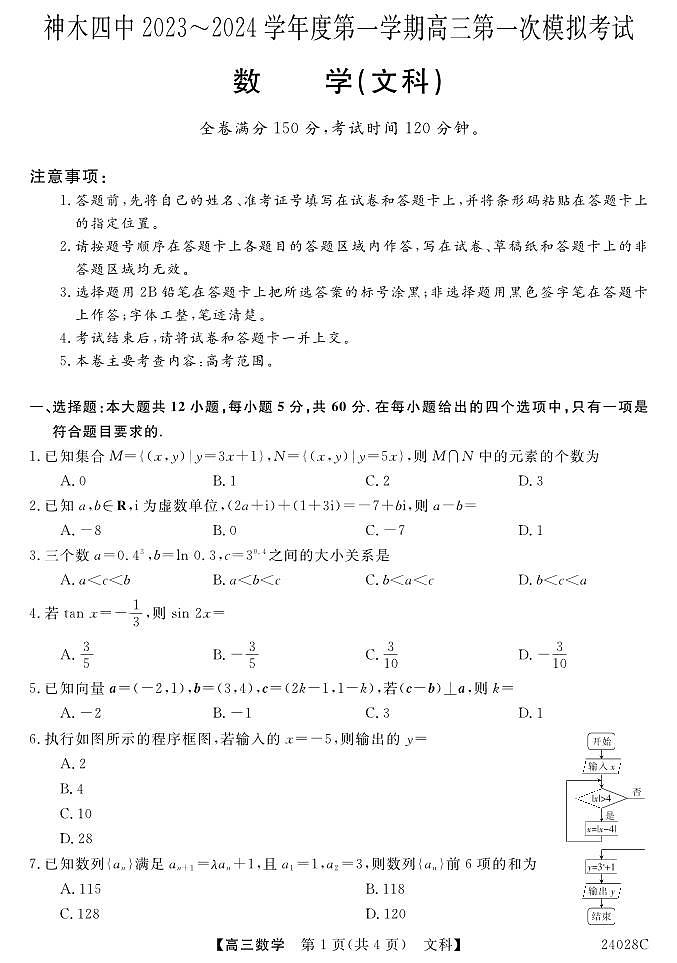 神木四中 2023～2024 学年度第一学期高三第一次模拟考试
数 学(文科)
全卷满分 150 分,考试时间 120 分钟。
注意事项:
1. 答题前,先将自己的姓名、准考证号填写在试卷和答题卡上,并将条形码粘贴在答题卡上
的指定位置。
2. 请按题号顺序在答题卡上各题目的答题区域内作答,写在试卷、草稿纸和答题卡上的非
答题区域均无效。
3. 选择题用 2B 铅笔在答题卡上把所选答案的标号涂黑;非选择题用黑色签字笔在答题卡
上作答;字体工整,笔迹清楚。
4. 考试结束后,请将试卷和答题卡一并上交。
5. 本卷主要考查内容:高考范围。
一、选择题:本大题共 12 小题,每小题 5 分,共 60 分. 在每小题给出的四个选项中,只有一项是
符合题目要求的.
1. 已知集合 M={(x,y)|y=3x+1},N={(x,y)|y=5x},则 M∩N 中的元素的个数为
A. 0 B. 1 C. 2 D. 3
2. 已知 a,b∈R,i 为虚数单位,(2a+i)+(1+3i)=-7+bi,则 a-b=
A. -8 B. 0 C. -7 D. 1
3. 三个数 a=0.4³,b=ln 0.3,c=3^0.4 之间的大小关系是
A. a<c<b B. a<b<c C. b<a<c D. b<c<a
4. 若 tan x=-1/3,则 sin 2x=
A. 3/5 B. -3/5 C. 3/10 D. -3/10
5. 已知向量 a=(-2,1),b=(3,4),c=(2k-1,1-k),若(c-b)⊥a,则 k=
A. -2 B. -1 C. 3 D. 1
6. 执行如图所示的程序框图,若输入的 x=-5,则输出的 y=
A. 2
B. 4
C. 10
D. 28
开始
输入 x
|x|>4
否
是
x=|x-4|
y=3ˣ+1
输出 y
结束
7. 已知数列{aₙ}满足 aₙ₊₁=λaₙ+1,且 a₁=1,a₂=3,则数列{aₙ}前 6 项的和为
A. 115 B. 118
C. 128 D. 120
【高三数学 第 1 页(共 4 页) 文科】 24028C